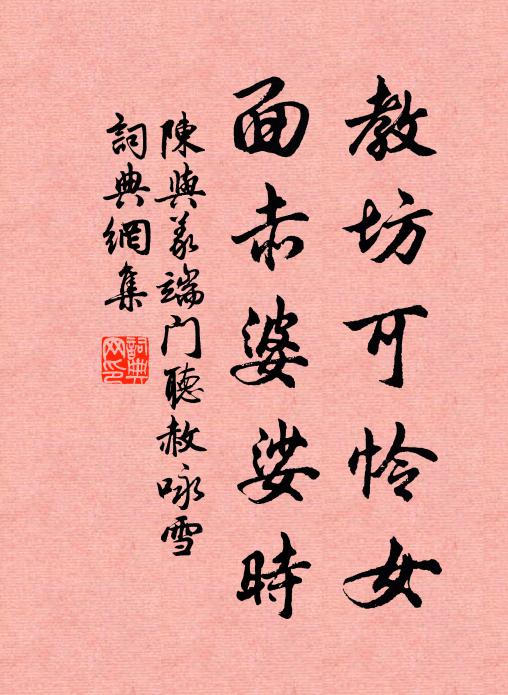 教坊可怜女
面赤婆娑時
陳與義端门聽赦咏雪
詞典網集
詞典网印